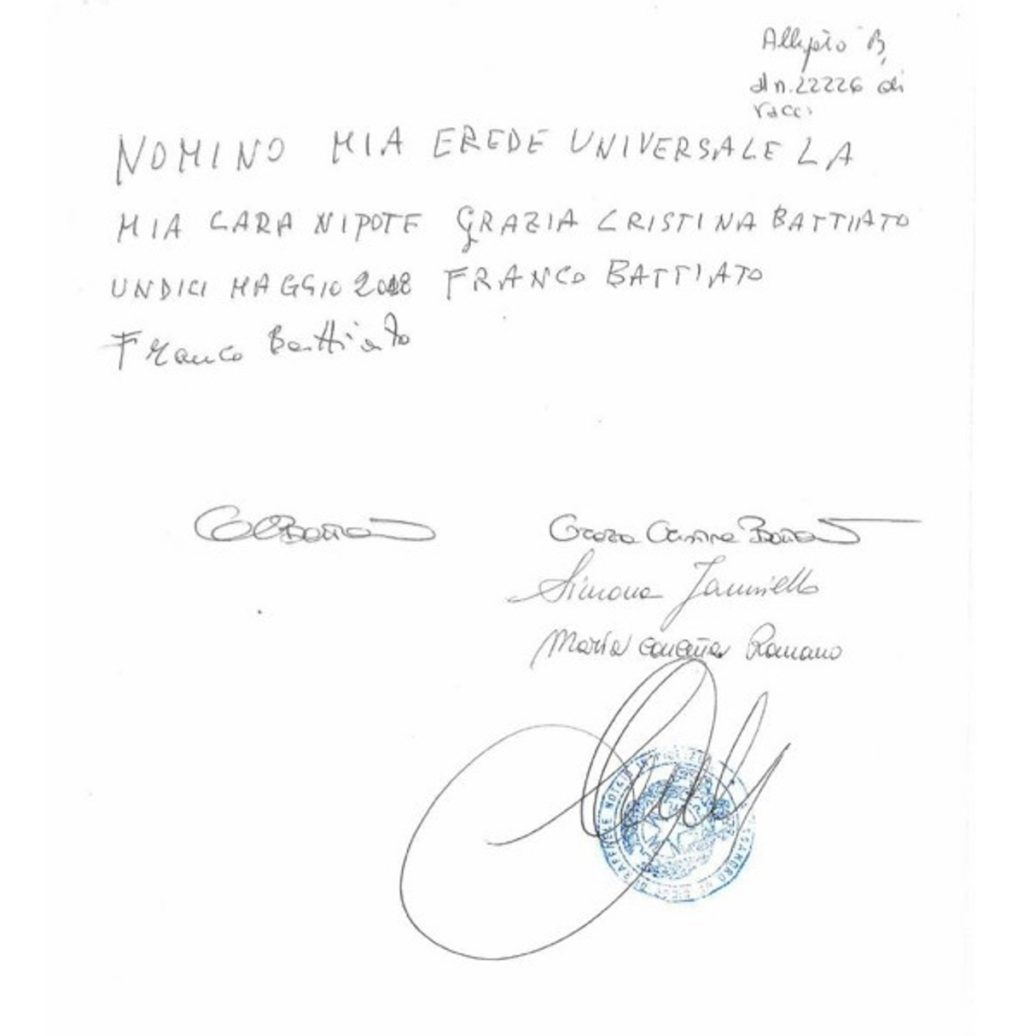 Allegato B
al n. 22226 di
racc.
NOMINO MIA EREDE UNIVERSALE LA
MIA CARA NIPOTE GRAZIA CRISTINA BATTIATO
UNDICI MAGGIO 2018 FRANCO BATTIATO
Franco Battiato
Grazia Cristina Battiato
Simona Ianniello
Maria Romano
NOTAIO IN